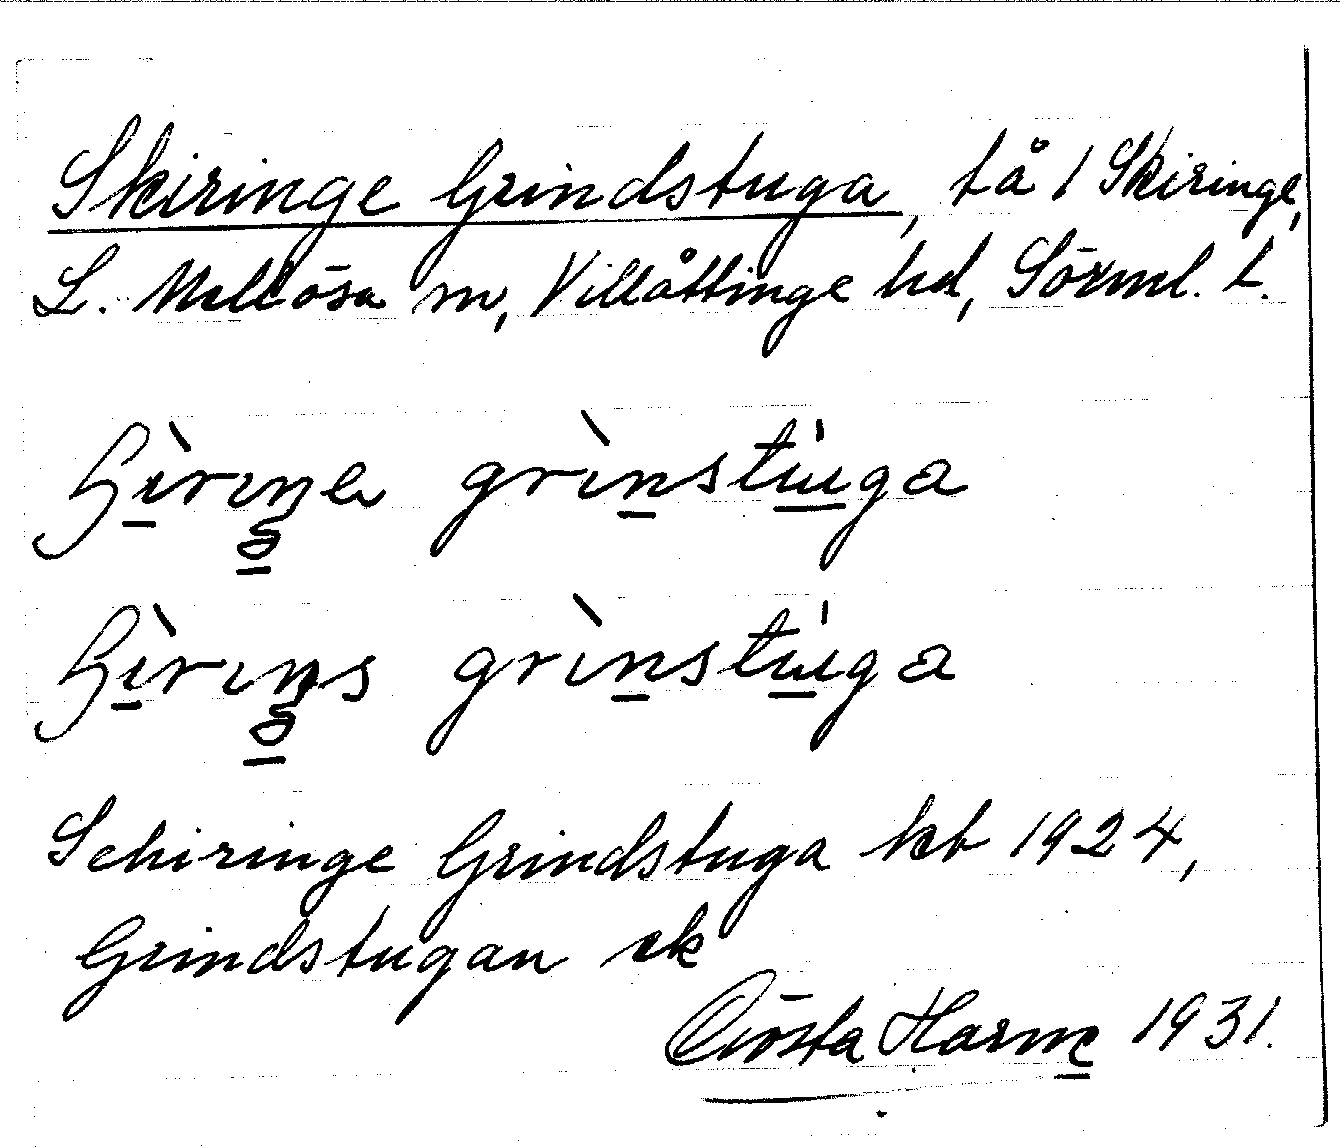 Skiringe Grindstuga, tå / Skiringe,
L. Mellösa sn, Villåttinge hd, Sörml. l.
ɧìrıŋe grìnstu̍ga
ɧìrıŋs grìnstu̍ga
Schiringe Grindstuga kb 1924,
Grindstugan ek
Gösta Harme 1931.